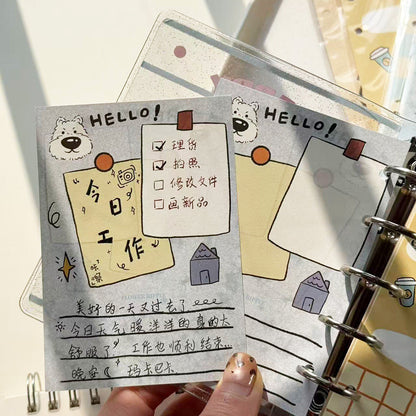 HELLO!
HELLO!
理货
拍照
修改文件
画新品
今日
工作
美好的一天又过去了
今日天气暖洋洋的真的太
舒服了 工作也顺利结束...
晚安 玛卡巴卡